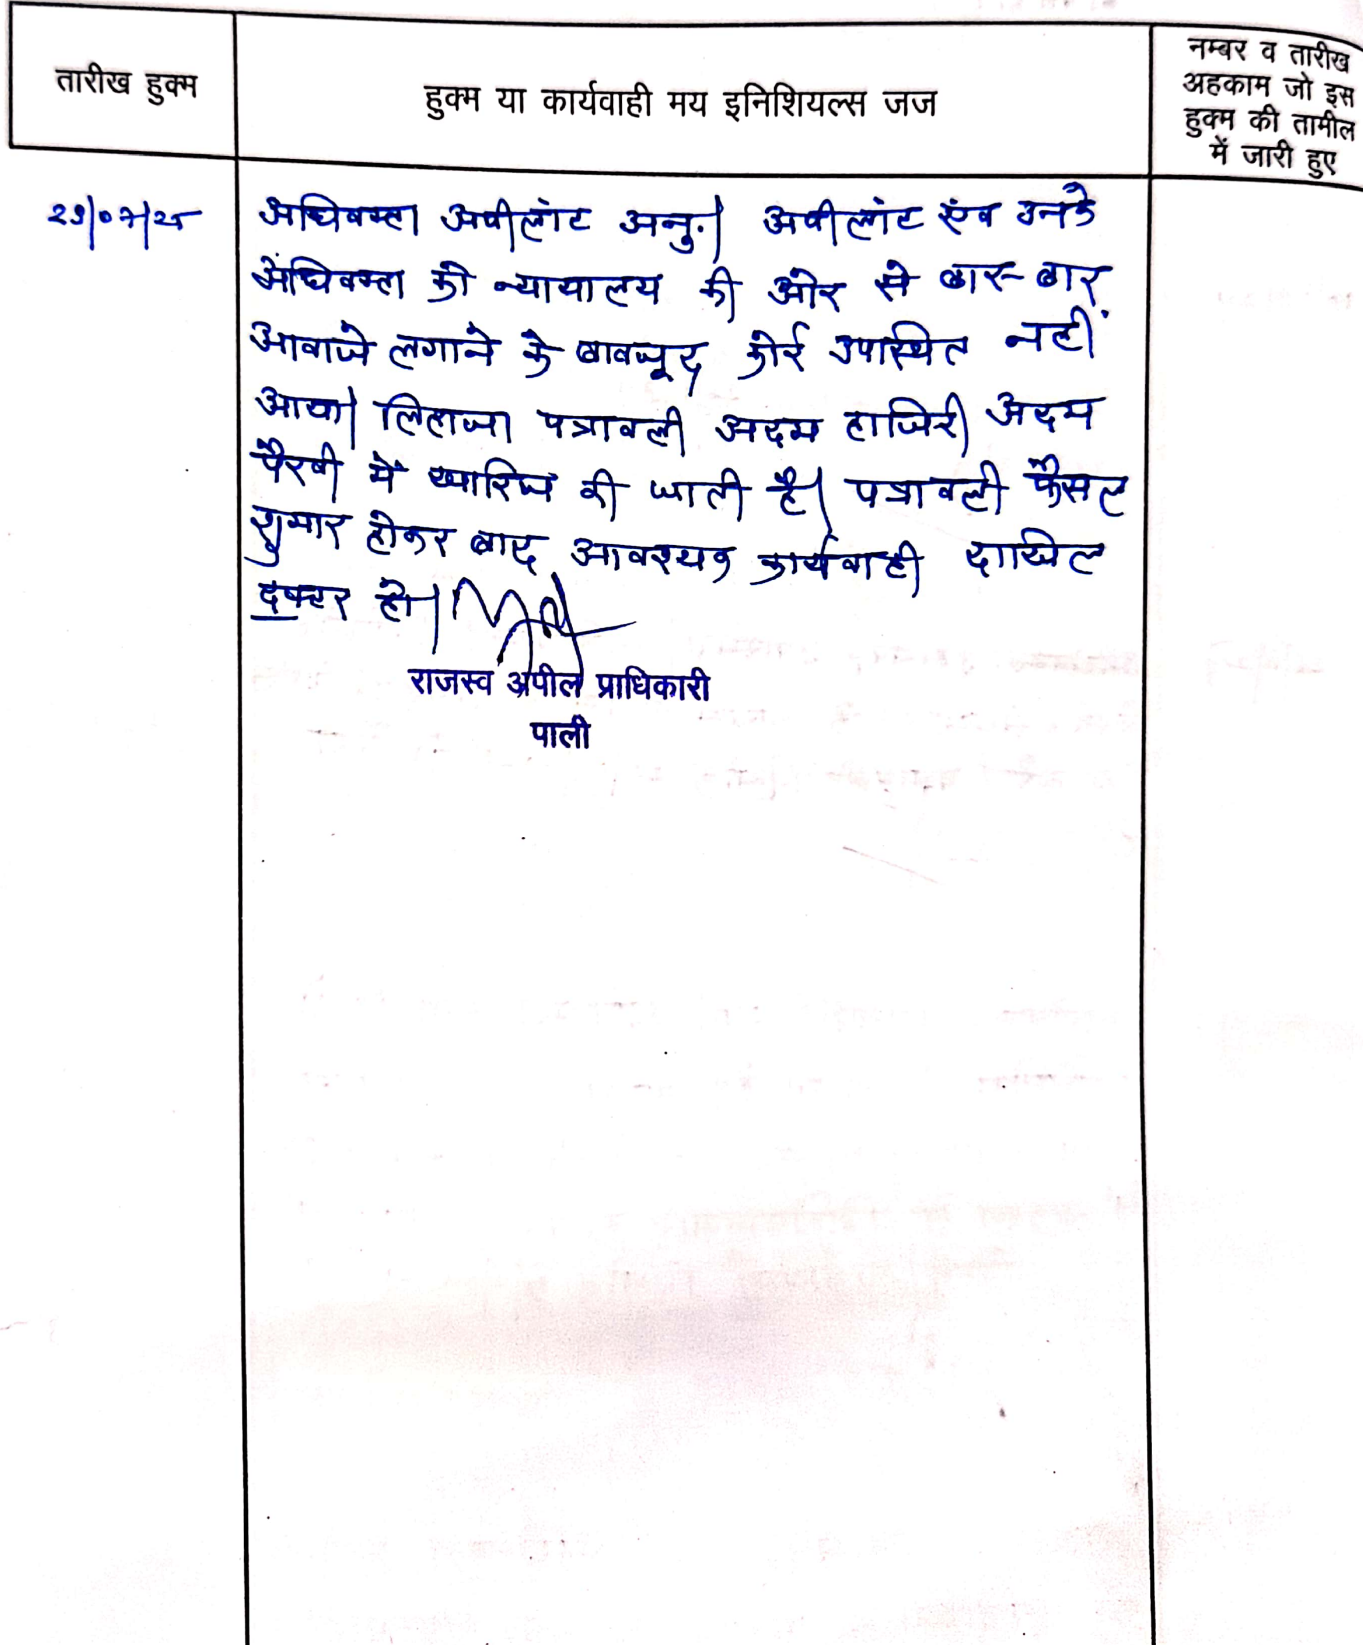 तारीख हुक्म
हुक्म या कार्यवाही मय इनिशियल्स जज
नम्बर व तारीख
अहकाम जो इस
हुक्म की तामील
में जारी हुए
अधिवक्ता अपीलांट अनु.। अपीलांट एंव उनके
अधिवक्ता को न्यायालय की ओर से बार-बार
आवाजे लगाने के बावजूद कोई उपस्थित नहीं
आया। लिहाजा पत्रावली अदम हाजिरी अदम
पैरवी में खारिज की जाती है। पत्रावली फैसल
शुमार होकर बाद आवश्यक कार्यवाही दाखिल
दफ्तर हो।
राजस्व अपील प्राधिकारी
पाली